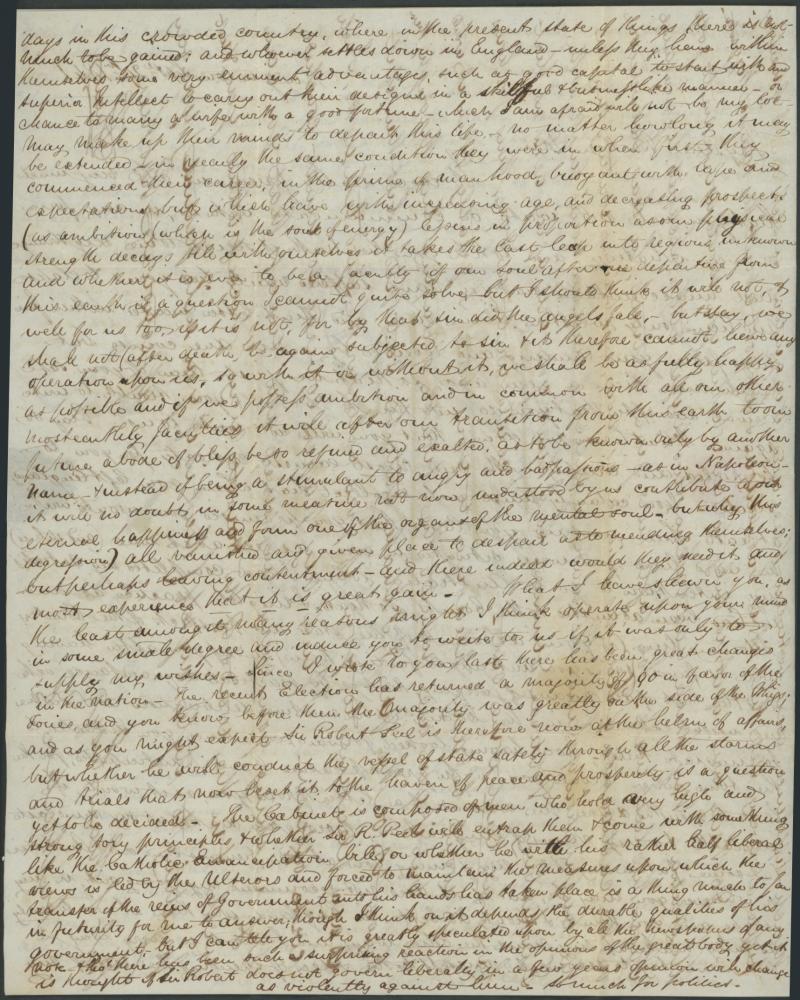 days in this crowded country, where in the present state of things there is not
much to be gained; and whoever settles down in England - unless they have within
themselves some very eminent advantages, such as good capital to start with and
superior intellect to carry out their designs in a skilful & businesslike manner - or
chance to marry a wife with a good fortune - which I am afraid will not be my lot -
may make up their minds to depart this life, - no matter how long it may
be extended - in nearly the same condition they were in when first they
commenced their career, in the prime of manhood, buoyant with hope and
expectations but which leave with increasing age, and decreasing prospects
(as ambition (which is the soul of energy) lessens in proportion as our physical
strength decays till with ourselves it takes the last leap into regions unknown
and whether it is ever to be a faculty of our soul after our departure from
this earth is a question I cannot quite solve - but I should think it will not, &
well for us too, if it is not, for by that sin did the angels fall, - but stay, we
shall not (after death) be again subjected to sin & it therefore cannot have any
operation upon us, so with it or without it, we shall be as fully happy
as possible and if we possess ambition and in common with all our other
most earthly faculties it will after our transition from this earth to our
future abode of bless be so refined and exalted, as to be known only by another
name - & instead of being a stimulant to angry and bad passions - as in Napoleon -
it will no doubt in some measure not now understood by us contribute to our
eternal happiness and form one of the organs of the mental soul - but why this
degression) all vanished and given place to despair as to mending themselves;
but perhaps leaving contentment - and there indeed would they need it and
most experience that it is great gain - What I have shewn you, as
the least amongst many reasons might I think operate upon your mind
in some small degree and induce you to write to us if it was only to
supply my wishes - Since I wrote to you last there has been great changes
in the nation - The recent Election has returned a majority of 90 in favor of the
Tories, and you know before then the Majority was greatly on the side of the Whigs;
and as you might expect Sir Robert Peel is therefore now at the helm of affairs,
but whether he will conduct the vessel of state safely through all the storms
and trials that now beset it, to the haven of peace and prosperity is a question
yet to be decided - The Cabinet is composed of men who hold very high and
strong tory principles, & whether Sir R. Peel will entrap them & come with something
like the Catholic Emancipation bill, or whether he with his rather half liberal
views is led by the Ulterors and forced to maintain the measures upon which the
transfer of the reins of Government into his hands has taken place is a thing much too far
in futurity for me to answer; though I think on it depends the durable qualities of his
government, but I can tell you it is greatly speculated upon by all the newspapers of any
note tho' there has been such a surprising reaction in the opinions of the great body yet it
is thought if Sir Robert does not govern liberally in a few years opinion will change
as violently against him - so much for politics -